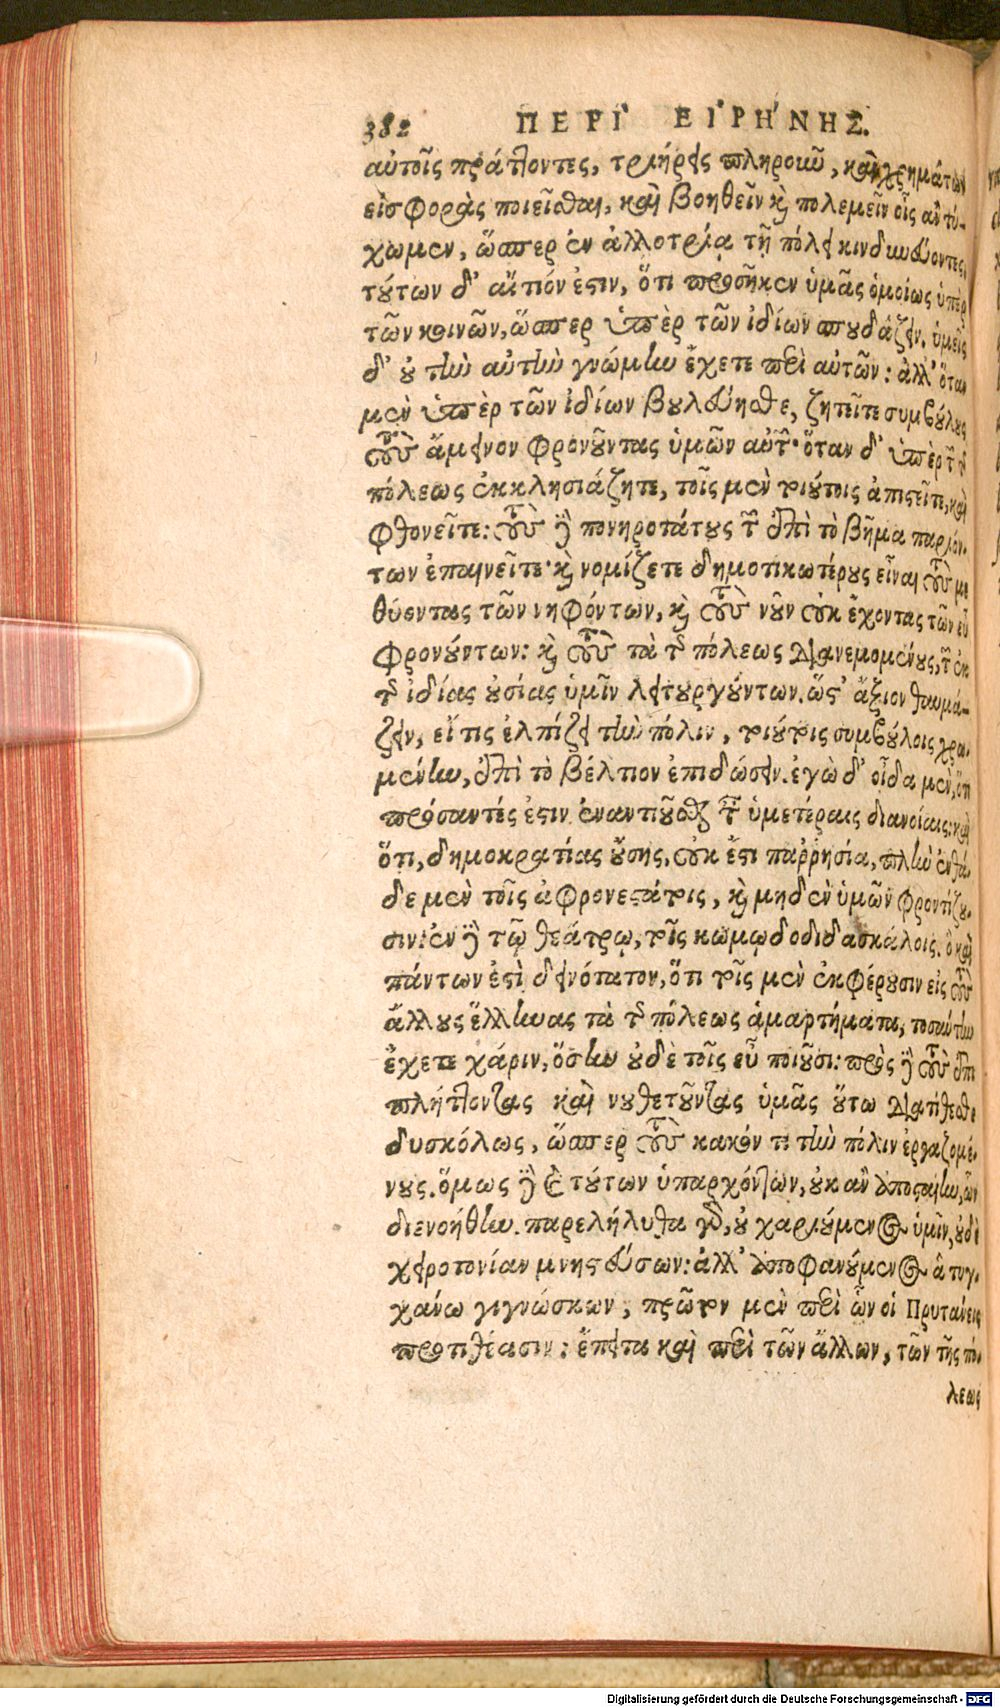 382 ΠΕΡΙ ΕΙΡΗΝΗΣ.
αὐτοῖς πράττοντες, τριήρεις πληροῦν, καὶ χρημάτων
εἰσφορὰς ποιεῖσθαι, καὶ βοηθεῖν κὶ πολεμεῖν οἷς ἂν τύ-
χωμεν, ὥσπερ ἐν ἀλλοτρίᾳ τῇ πόλει κινδυνεύοντες,
τούτων δ' αἴτιόν ἐστιν, ὅτι προσῆκεν ὑμᾶς ὁμοίως ὑπὲρ
τῶν κοινῶν, ὥσπερ ὑπὲρ τῶν ἰδίων σπουδάζειν. ὑμεῖς
δ' οὐ τὴν αὐτὴν γνώμην ἔχετε περὶ αὐτῶν: ἀλλ' ὅταν
μὲν ὑπὲρ τῶν ἰδίων βουλεύησθε, ζητεῖτε συμβούλους
τοὺς ἄμεινον φρονοῦντας ὑμῶν αὐτῶν· ὅταν δ' ὑπὲρ τῶν τῆς
πόλεως ἐκκλησιάζητε, τοῖς μὲν τοιούτοις ἀπιστεῖτε, καὶ
φθονεῖτε: τοὺς δὲ πονηροτάτους τῶν ἐπὶ τὸ βῆμα παριόν-
των ἐπαινεῖτε· κὶ νομίζετε δημοτικωτέρους εἶναι τοὺς με
θύοντας τῶν νηφόντων, κὶ τοὺς νοῦν οὐκ ἔχοντας τῶν εὖ
φρονούντων: κὶ τοὺς τὰ τῆς πόλεως διανεμομένους, τῶν ἐκ
τῆς ἰδίας οὐσίας ὑμῖν λειτουργούντων. ὥστ' ἄξιον θαυμά-
ζειν, εἴ τις ἐλπίζει τὴν πόλιν, τοιούτοις συμβούλοις χρω-
μένην, ἐπὶ τὸ βέλτιον ἐπιδώσειν. ἐγὼ δ' οἶδα μὲν, ὅτι
πρόσαντές ἐστιν ἐναντιοῦσθαι ταῖς ὑμετέραις διανοίαις: καὶ
ὅτι, δημοκρατίας οὔσης, οὐκ ἔστι παῤῥησία, πλὴν ἐνθά-
δε μὲν τοῖς ἀφρονεστάτοις, κὶ μηδὲν ὑμῶν φροντίζου-
σιν: ἐν δὲ τῷ θεάτρῳ, τοῖς κωμῳδοδιδασκάλοις. ὃ καὶ
πάντων ἐστὶ δεινότατον, ὅτι τοῖς μὲν ἐκφέρουσιν εἰς τοὺς
ἄλλους ἕλληνας τὰ τῆς πόλεως ἁμαρτήματα, τοσαύτην
ἔχετε χάριν, ὅσην οὐδὲ τοῖς εὖ ποιοῦσι: πρὸς δὲ τοὺς ἐπι
πλήττοντας καὶ νουθετοῦντας ὑμᾶς οὕτω διατίθεσθε
δυσκόλως, ὥσπερ τοὺς κακόν τι τὴν πόλιν ἐργαζομέ-
νους. ὅμως δὲ καὶ τούτων ὑπαρχόντων, οὐκ ἂν ἀποσταίην, ὧν
διενοήθην. παρελήλυθα γὰρ, οὐ χαριούμενος ὑμῖν, οὐδὲ
χειροτονίαν μνηστεύσων: ἀλλ' ἀποφανούμενος ἃ τυγ-
χάνω γιγνώσκων, πρῶτον μὲν περὶ ὧν οἱ Πρυτάνεις
προτιθέασιν: ἔπειτα καὶ περὶ τῶν ἄλλων, τῶν τῆς πό-
λεως
Digitalisierung gefördert durch die Deutsche Forschungsgemeinschaft - DFG